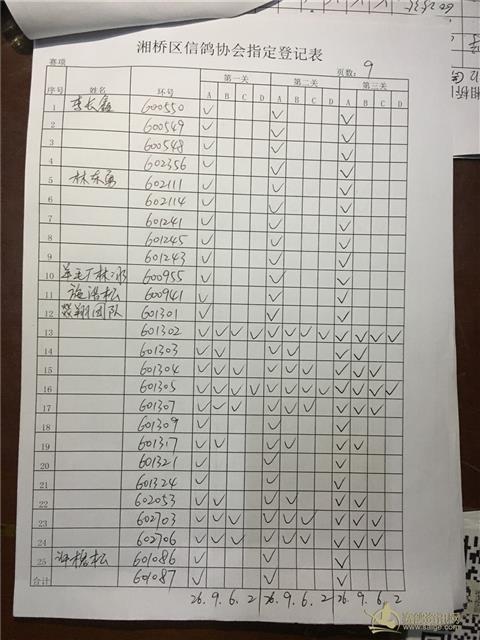 湘桥区信鸽协会指定登记表
赛项 页数: 9
序号 姓名 环号 第一关 第二关 第三关
A B C D A B C D A B C D
1 李长鑫 600550 ✓ ✓ ✓
2 600549 ✓ ✓ ✓
3 600548 ✓ ✓ ✓
4 602356 ✓ ✓ ✓
5 林东勇 602111 ✓ ✓ ✓
6 602114 ✓ ✓ ✓
7 601241 ✓ ✓ ✓
8 601245 ✓ ✓ ✓
9 601243 ✓ ✓ ✓
10 羊毛厂林冰 600955 ✓ ✓ ✓
11 施浩松 600941 ✓ ✓ ✓
12 翔团队 601301 ✓ ✓ ✓
13 601302 ✓ ✓ ✓ ✓ ✓ ✓ ✓ ✓ ✓ ✓ ✓ ✓
14 601303 ✓ ✓ ✓ ✓ ✓ ✓
15 601304 ✓ ✓ ✓ ✓ ✓ ✓ ✓ ✓ ✓
16 601305 ✓ ✓ ✓ ✓ ✓ ✓ ✓ ✓ ✓ ✓ ✓ ✓
17 601307 ✓ ✓ ✓ ✓ ✓ ✓ ✓ ✓ ✓
18 601309 ✓ ✓ ✓
19 601317 ✓ ✓ ✓ ✓ ✓ ✓
20 601321 ✓ ✓ ✓
21 601324 ✓ ✓ ✓
22 602053 ✓ ✓ ✓ ✓ ✓ ✓
23 602703 ✓ ✓ ✓ ✓ ✓ ✓ ✓ ✓ ✓
24 602706 ✓ ✓ ✓ ✓ ✓ ✓ ✓ ✓ ✓
25 松 601086 ✓ ✓ ✓
合计 601087 ✓ ✓ ✓
26. 9. 6. 2 26. 9. 6. 2 26. 9. 6. 2